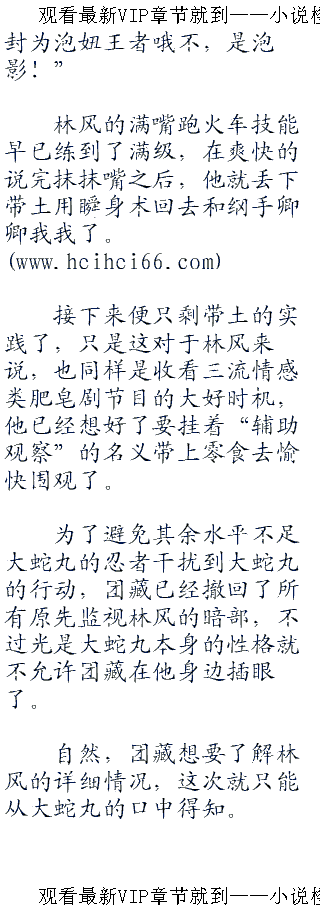 观看最新VIP章节就到——小说
封为泡妞王者哦不，是泡
影！”
林风的满嘴跑火车技能
早已练到了满级，在爽快的
说完抹抹嘴之后，他就丢下
带土用瞬身术回去和纲手卿
卿我我了。
(www.hcihci66.com)
接下来便只剩带土的实
践了，只是这对于林风来
说，也同样是收看三流情感
类肥皂剧节目的大好时机，
他已经想好了要挂着“辅助
观察”的名义带上零食去愉
快围观了。
为了避免其余水平不足
大蛇丸的忍者干扰到大蛇丸
的行动，团藏已经撤回了所
有原先监视林风的暗部，不
过光是大蛇丸本身的性格就
不允许团藏在他身边插眼
了。
自然，团藏想要了解林
风的详细情况，这次就只能
从大蛇丸的口中得知。
观看最新VIP章节就到——小说